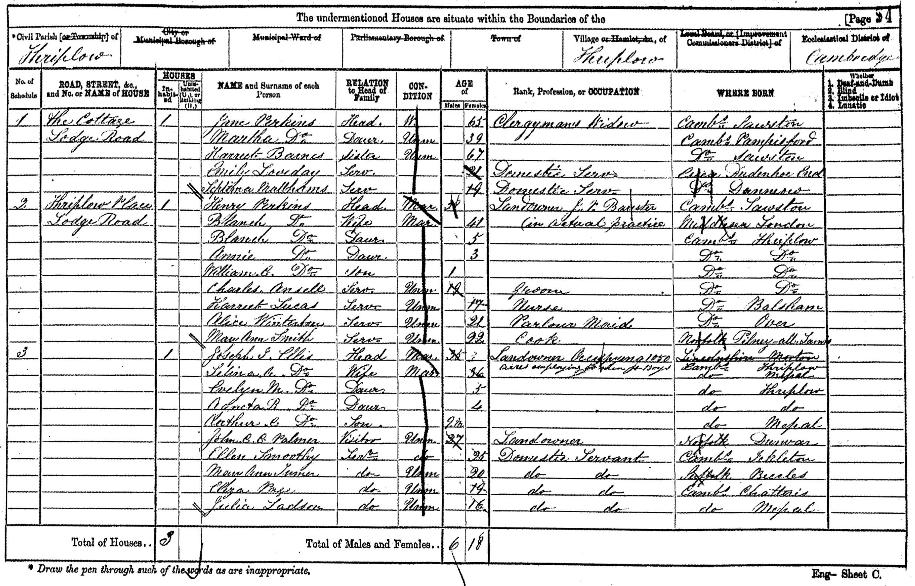 The undermentioned Houses are situate within the Boundaries of the [Page 34
*Civil Parish [or Township] of City or Municipal Borough of Municipal Ward of Parliamentary Borough of Town of Village or Hamlet, &c., of Local Board, or [Improvement Commissioners District] of Ecclesiastical District of
Thriplow Thriplow Cambridge
No. of Schedule ROAD, STREET, &c., and No. or NAME of HOUSE HOUSES Inhabited Uninhabited (U.), or Building (B.) NAME and Surname of each Person RELATION to Head of Family CONDITION AGE Males Females Rank, Profession, or OCCUPATION WHERE BORN Whether 1. Deaf-and-Dumb 2. Blind 3. Imbecile or Idiot 4. Lunatic
1 The Cottage 1 Jane Perkins Head W 65 Clergymans Widow Cambs Sawston
Lodge Road Martha Do Daur Unm 39 Cambs Pampisford
Harriet Barnes Sister Unm 67 Do Sawston
Emily Loveday Serv Domestic Serv
Serv 19 Domestic Serv Dunmow
2 Thriplow Place 1 Henry Perkins Head Mar Landowner Cambs Sawston
Lodge Road Blanch Do Wife Mar 41 (in actual practice London
Blanch Do Daur 5 Cambs Thriplow
Annie Do Daur 3 Do Do
William Do Son 1 Do Do
Charles Ansell Serv Unm 19 Groom Do Do
Harriet Lucas Serv Unm 17 Nurse Do Balsham
Alice Serv Unm 21 Parlour Maid Do Over
Mary Ann Smith Serv Unm 22 Cook Norfolk
3 1 Joseph Ellis Head Mar Landowner
Do Wife Mar 36 Cambs Mepal
Evelyn M. Do Daur 5 do Thriplow
Do Daur 4 do do
Arthur Do Son do Mepal
John Palmer Visitor Unm 27 Landowner Norfolk
Ellen Serv do 25 Domestic Servant Cambs Ickleton
Mary Ann Turner do Unm 20 do do Beccles
Eliza do Unm 19 do do Cambs Chatteris
Julia do Unm 16 do do Mepal
Total of Houses.. 3 Total of Males and Females.. 6 18
* Draw the pen through such of the words as are inappropriate. Eng- Sheet C.